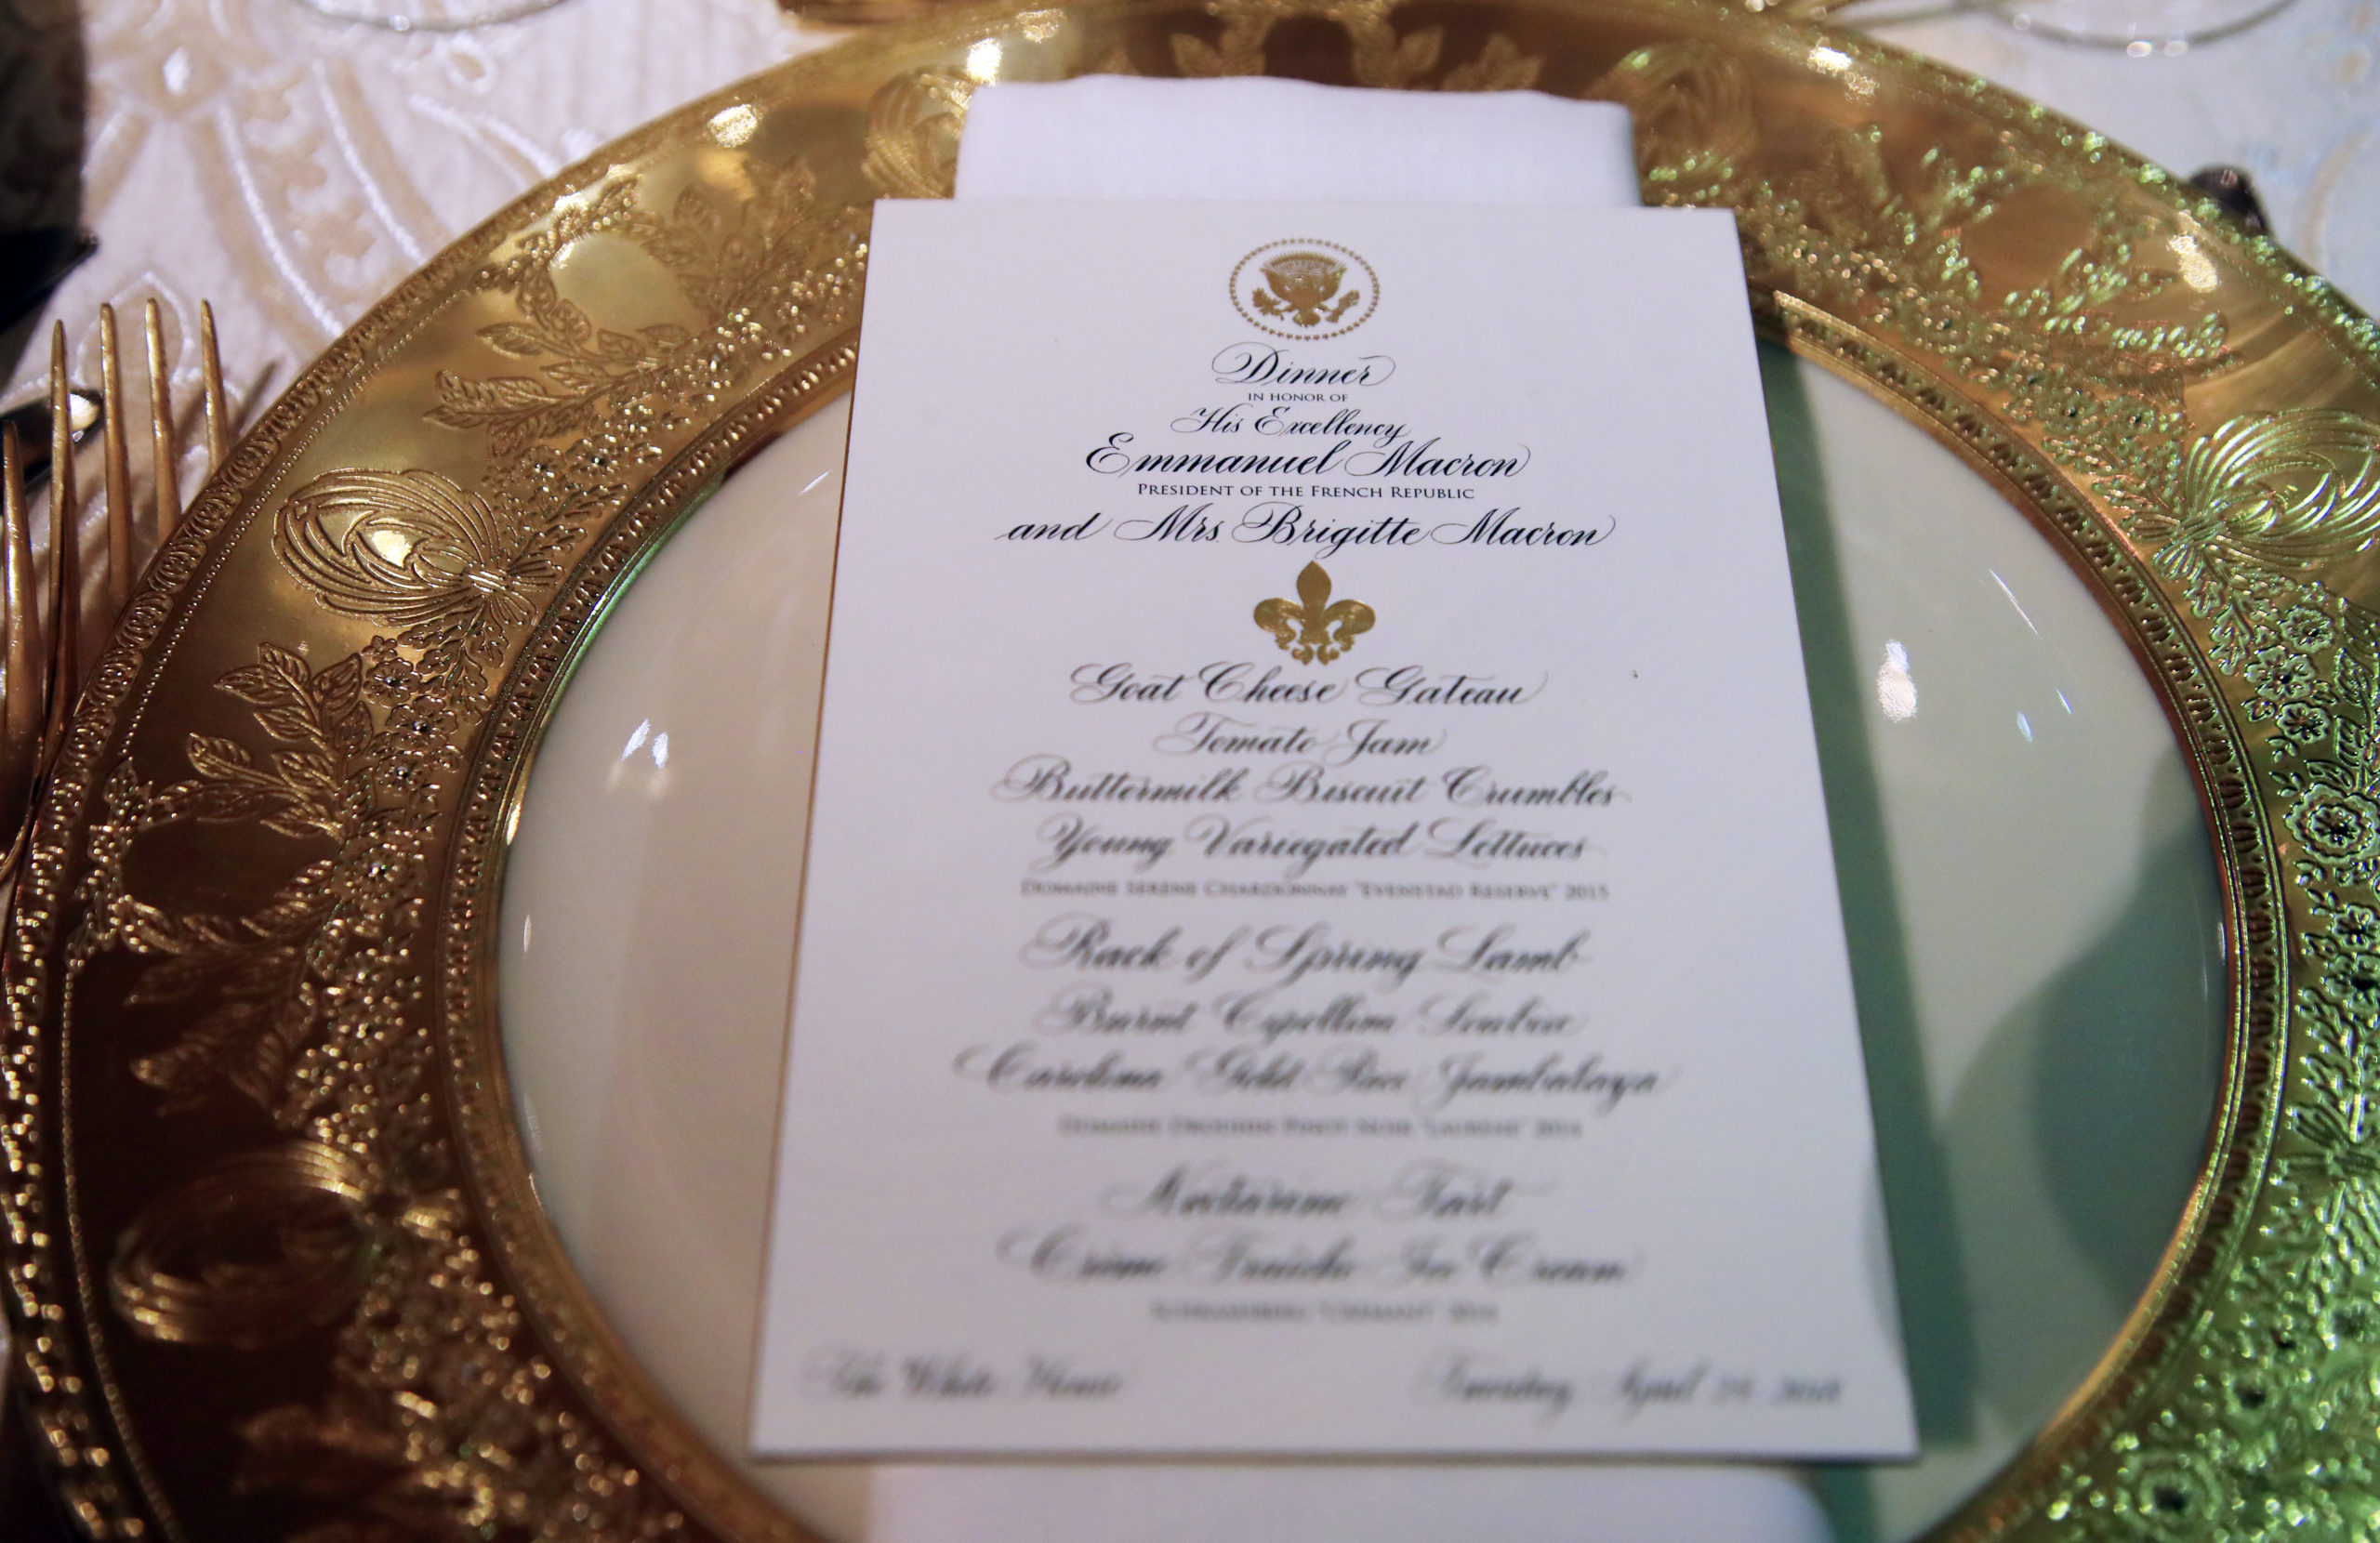 Dinner
IN HONOR OF
His Excellency
Emmanuel Macron
PRESIDENT OF THE FRENCH REPUBLIC
and Mrs. Brigitte Macron
Goat Cheese Gateau
Tomato Jam
Buttermilk Biscuit Crumbles
Young Variegated Lettuces
DOMAINE SERENE CHARDONNAY "EVENSTAD RESERVE" 2015
Rack of Spring Lamb
Burnt Cipollini Soubise
Carolina Gold Rice Jambalaya
DOMAINE DROUHIN PINOT NOIR "LAURÈNE" 2014
Nectarine Tart
Crème Fraîche Ice Cream
SCHRAMSBERG "CRÉMANT" 2014
The White House
Tuesday, April 24, 2018